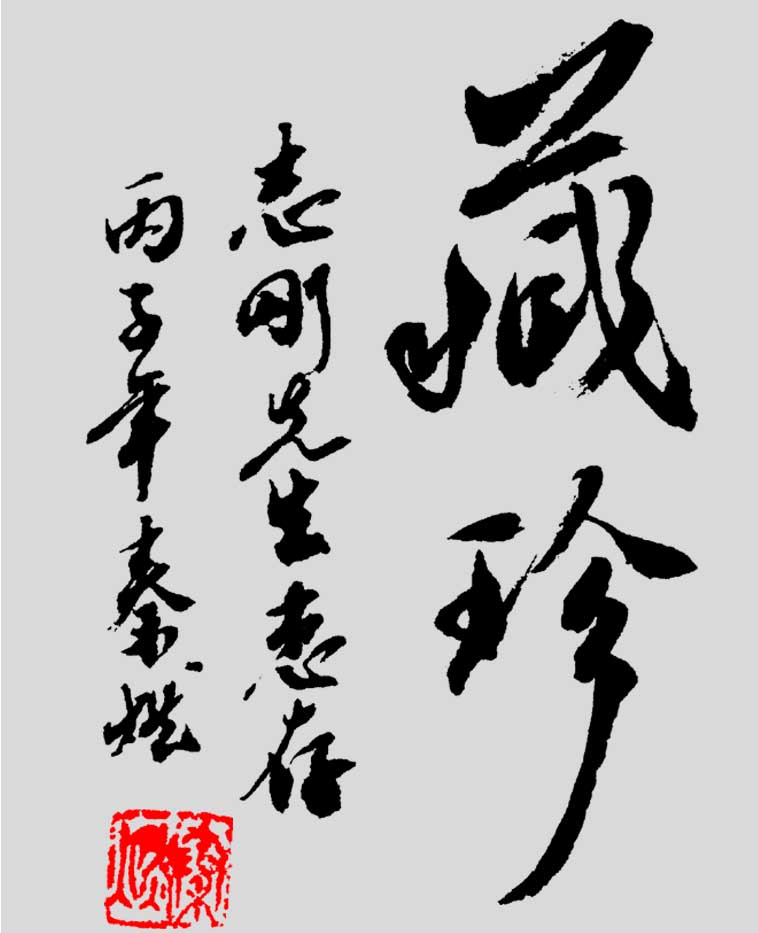 藏珍
志刚先生惠存
丙子年秦